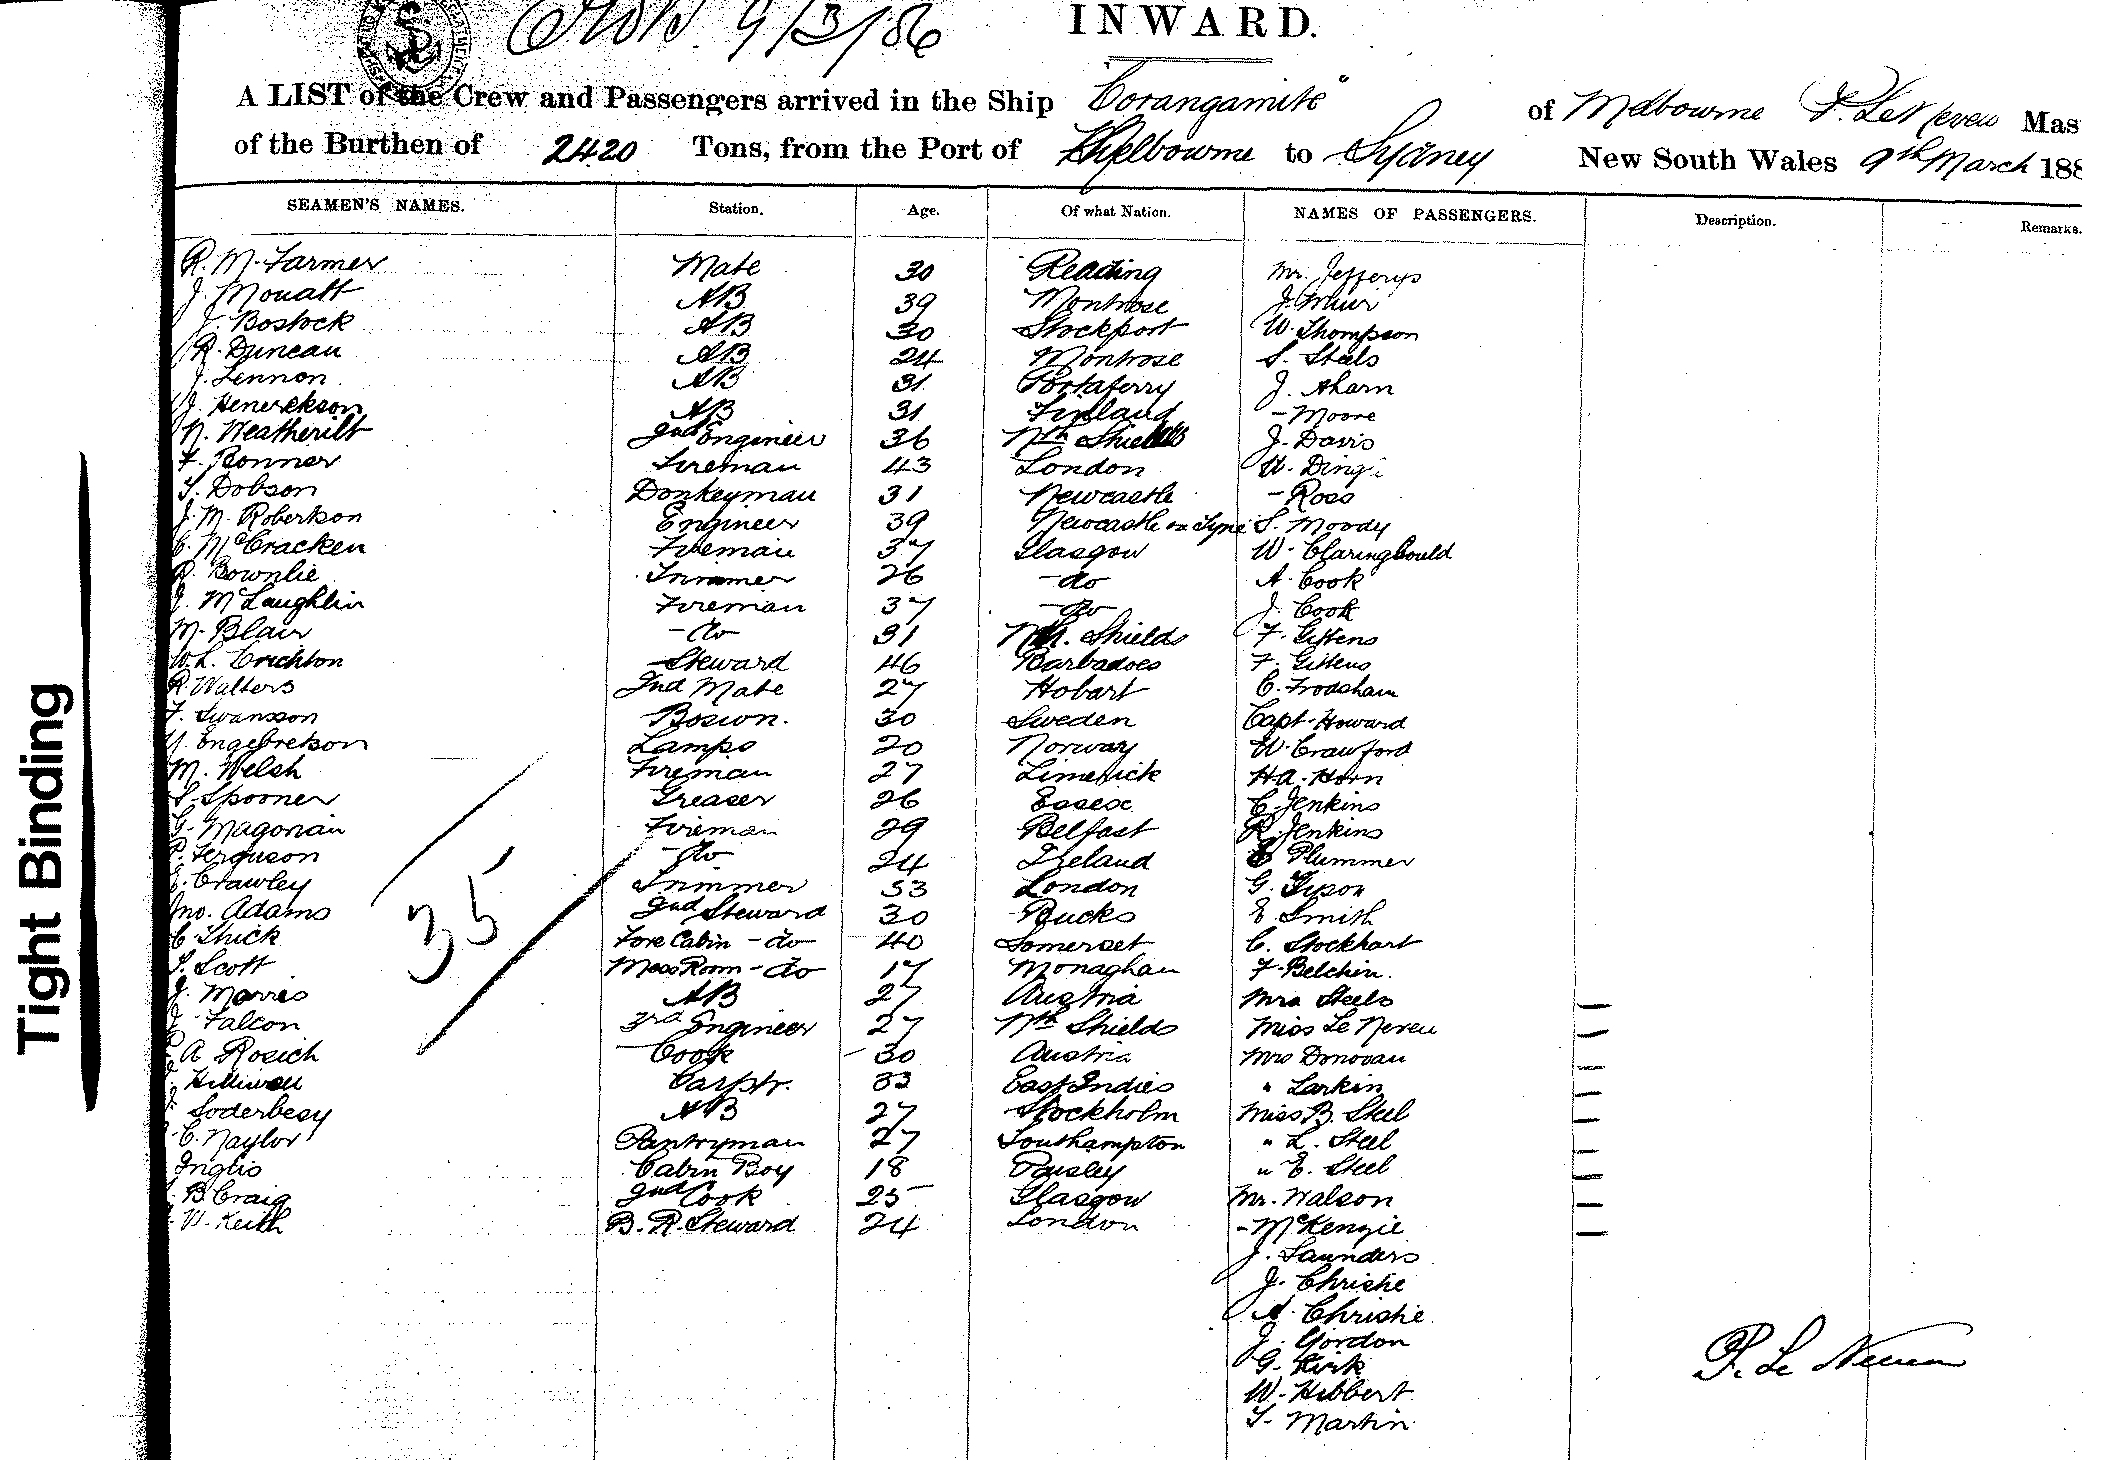 9/3/86
INWARD.
A LIST of the Crew and Passengers arrived in the Ship "Corangamite" of Melbourne P. Le Neveu Mas
of the Burthen of 2420 Tons, from the Port of Melbourne to Sydney New South Wales 9th March 188
SEAMEN'S NAMES. Station. Age. Of what Nation. NAMES OF PASSENGERS. Description. Remarks.
R. M. Farmer Mate 30 Reading Mr. Jefferys
J. Mouatt AB 39 Montrose J. Muir
J. Bostock AB 30 Stockport W. Thompson
R. Duncan AB 24 Montrose S. Steels
J. Lennon AB 31 Portaferry J. Aharn
J. Henerekson AB 31 Finland - Moore
N. Weatherilt 2nd Engineer 36 Nth Shields J. Davis
F. Bonner Fireman 43 London
T. Dobson Donkeyman 31 Newcastle - Ross
J. M. Robertson Engineer 39 Newcastle on Tyne S. Moody
C. McCracken Fireman 37 Glasgow W. Claringbould
Bownlie Trimmer 26 - do A. Cook
J. McLaughlin Fireman 37 - do J. Cook
M. Blair - do 31 Nth. Shields F. Gittens
W. L. Crichton Steward 46 Barbadoes F. Gittens
R. Walters 2nd Mate 27 Hobart C. Frodsham
F. Swanson Boswn. 30 Sweden Capt. Howard
Engebretson Lamps 20 Norway W. Crawford
M. Welsh Fireman 27 Limerick H A. Horn
S. Spooner Greaser 26 Essex C. Jenkins
G. Magorian Fireman 29 Belfast R. Jenkins
P. Ferguson - do 24 Ireland Plummer
E. Crawley Trimmer 33 London G. Tyson
Jno. Adams 2nd Steward 30 Bucks E. Smith
C. Stuck Fore Cabin - do 40 Somerset C. Stockhart
T. Scott Mess Room - do 17 Monaghan F. Belchin.
J. Marres AB 27 Austria Mrs Steels
J. Falcon 3rd Engineer 27 Nth Shields Miss Le Neveu
A Rosich Cook 30 Austria Mrs Donovan
Hilliwell Carptr. 33 East Indies " Larkin
Soderbesy AB 27 Stockholm Miss B. Steel
C. Naylor Pantryman 27 Southampton " L. Steel
Inglis Cabin Boy 18 Paisley " E. Steel
B. Craig 2nd Cook 25 Glasgow Mr. Walson
W. Keith B. R. Steward 24 London - McKenzie
J. Saunders
J. Christie
A. Christie
J. Gordon
G. Kirk
W. Hibbert
T. Martin
35
P. Le Neveu
Tight Binding